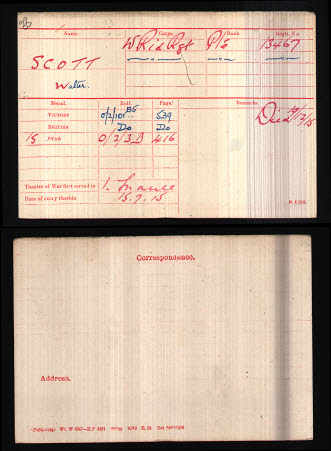 Name. Corps. Rank Regtl. No.
SCOTT W Rid Rgt Pte 13467
Walter.
Medal. Roll. Page. Remarks.
VICTORY 0/2/101 B5 539
BRITISH Do Do
15 STAR 0/2/3B 416
Theatre of War first served in 1. France
Date of entry therein 15.7.15
Correspondence.
Address.